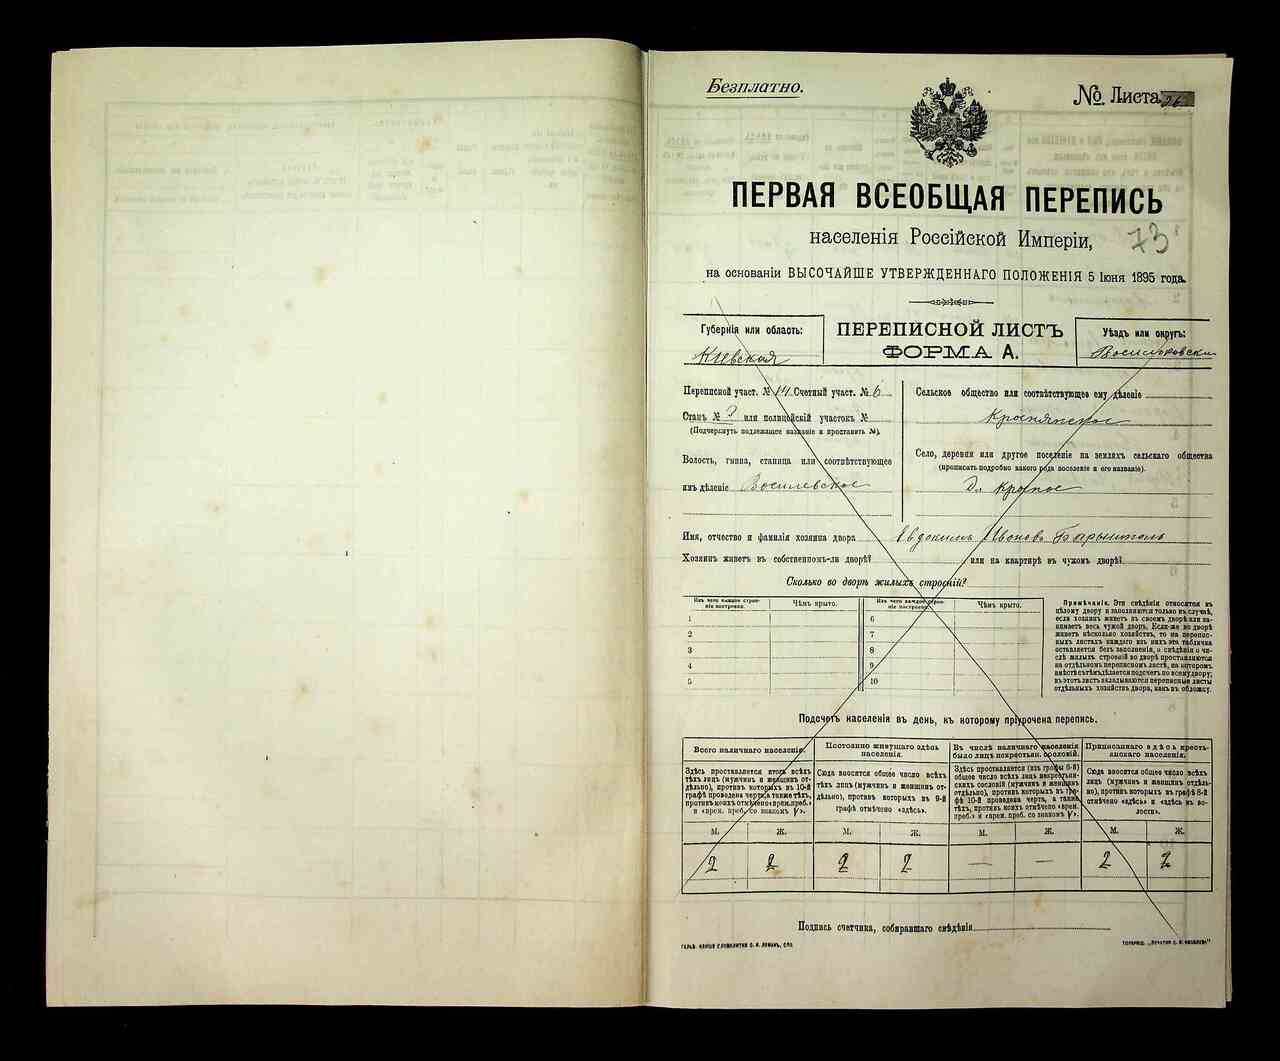 Безплатно.
№ Листа 26
ПЕРВАЯ ВСЕОБЩАЯ ПЕРЕПИСЬ
населенія Россійской Имперіи,
73
на основаніи ВЫСОЧАЙШЕ УТВЕРЖДЕННАГО ПОЛОЖЕНІЯ 5 Іюня 1895 года.
Губернія или область:
Кіевская
ПЕРЕПИСНОЙ ЛИСТЪ
ФОРМА А.
Уѣздъ или округъ:
Васильковскій
Переписной участ. № 14 Счетный участ. № 6
Станъ № 2 или полицейскій участокъ №
(Подчеркнуть подлежащее названіе и проставить №).
Волость, гмина, станица или соотвѣтствующее
имъ дѣленіе Василевское
Сельское общество или соотвѣтствующее ему дѣленіе
Краснянское
Село, деревня или другое поселеніе на земляхъ сельскаго общества
(прописать подробно какого рода поселеніе и его названіе).
Д. Красное
Имя, отчество и фамилія хозяина двора Евдокимъ Ивановъ
Хозяинъ живетъ въ собственномъ-ли дворѣ? или на квартирѣ въ чужомъ дворѣ?
Сколько во дворѣ жилыхъ строеній?
Изъ чего каждое строеніе построено. Чѣмъ крыто. Изъ чего каждое строеніе построено. Чѣмъ крыто.
1 6
2 7
3 8
4 9
5 10
Примѣчаніе. Эти свѣдѣнія относятся къ
цѣлому двору и заполняются только въ случаѣ,
если хозяинъ живетъ въ своемъ дворѣ или занимаетъ
весь чужой дворъ. Если-же во дворѣ
живетъ нѣсколько хозяйствъ, то на переписныхъ
листахъ каждаго изъ нихъ эта табличка
оставляется безъ заполненія, а свѣдѣнія о числѣ
жилыхъ строеній во дворѣ проставляются
на отдѣльномъ переписномъ листѣ, на которомъ
вмѣстѣ съ тѣмъ дѣлается подсчетъ по всему двору;
въ этотъ листъ вкладываются переписные листы
отдѣльныхъ хозяйствъ двора, какъ въ обложку.
Подсчетъ населенія въ день, къ которому пріурочена перепись.
Всего наличнаго населенія.
Здѣсь проставляется итогъ всѣхъ
тѣхъ лицъ (мужчинъ и женщинъ отдѣльно),
противъ которыхъ въ 10-й
графѣ проведена черта, а также тѣхъ,
противъ коихъ отмѣчено «врем. преб.»
и «врем. преб. со знакомъ V».
Постоянно живущаго здѣсь
населенія.
Сюда вносится общее число всѣхъ
тѣхъ лицъ (мужчинъ и женщинъ отдѣльно),
противъ которыхъ въ 9-й
графѣ отмѣчено «здѣсь».
Въ числѣ наличнаго населенія
было лицъ некрестьян. сословій.
Здѣсь проставляется (изъ графы 6-й)
общее число всѣхъ лицъ некрестьянскихъ
сословій (мужчинъ и женщинъ
отдѣльно), противъ которыхъ въ графѣ
10-й проведена черта, а также
тѣхъ, противъ коихъ отмѣчено «врем.
преб.» и «врем. преб. со знакомъ V».
Приписаннаго здѣсь крестьянскаго
населенія.
Сюда вносится общее число всѣхъ
тѣхъ лицъ (мужчинъ и женщинъ, отдѣльно),
противъ которыхъ въ графѣ 8-й
отмѣчено «здѣсь» и «здѣсь въ волости».
М. Ж. М. Ж. М. Ж. М. Ж.
2 2 2 2 — — 2 2
Подпись счетчика, собиравшаго свѣдѣнія